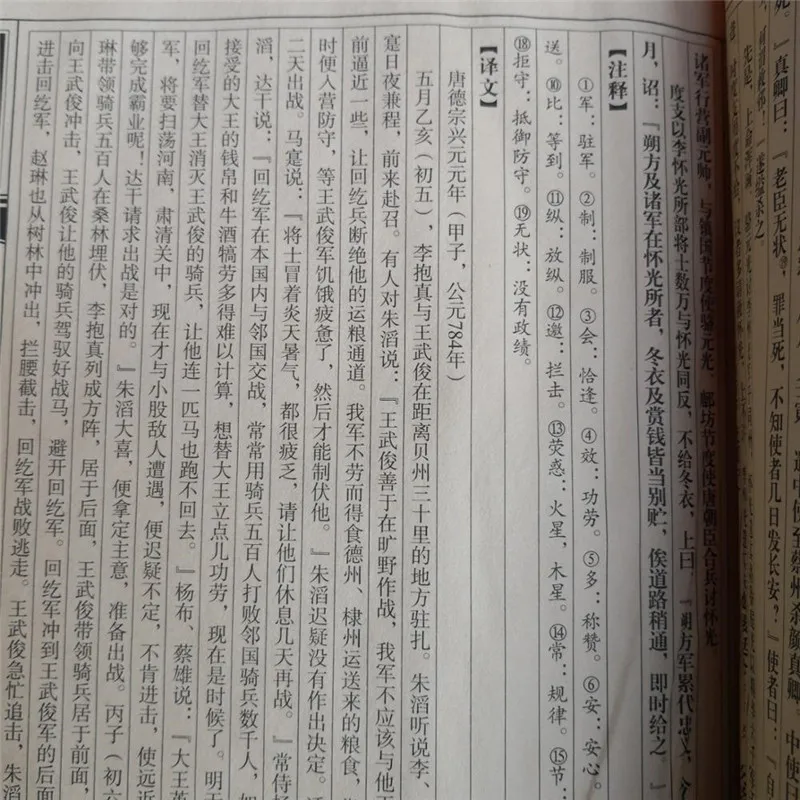 死。』真卿曰：『老臣无状，罪当死，不知使者几日发长安？』使者曰：『自
诸军行营副元帅，与镇国节度使骆元光、鄜坊节度使唐朝臣合兵讨怀光。
度支以李怀光所部将士数万与怀光同反，不给冬衣，上曰：『朔方军累代忠义，今
月，诏：『朔方及诸军在怀光所者，冬衣及赏钱皆当别贮，俟道路稍通，即时给之。』
【注释】
①军：驻军。②制：制服。③会：恰逢。④效：功劳。⑤多：称赞。⑥安：安心。
送。⑩比：等到。⑪纵：放纵。⑫邀：拦击。⑬荧惑：火星，木星。⑭常：规律。⑮节：
⑱拒守：抵御防守。⑲无状：没有政绩。
【译文】
唐德宗兴元元年（甲子，公元784年）
五月乙亥（初五），李抱真与王武俊在距离贝州三十里的地方驻扎。朱滔听说李、
寔日夜兼程，前来赴召。有人对朱滔说：『王武俊善于在旷野作战，我军不应该与他正
前逼近一些，让回纥兵断绝他的运粮通道。我军不劳而得食德州、棣州运送来的粮食，
时便入营防守，等王武俊军饥饿疲惫了，然后才能制伏他。』朱滔迟疑没有作出决定。
二天出战。马寔说：『将士冒着炎天暑气，都很疲乏，请让他们休息几天再战。』常侍杨
滔，达干说：『回纥军在本国内与邻国交战，常常用骑兵五百人打败邻国骑兵数千人，如
接受的大王的钱帛和牛酒犒劳多得难以计算，想替大王立点儿功劳，现在是时候了。明天
回纥军替大王消灭王武俊的骑兵，让他连一匹马也跑不回去。』杨布、蔡雄说：『大王英
军，将要扫荡河南，肃清关中，现在才与小股敌人遭遇，便迟疑不定，不肯进击，使远近
够完成霸业呢！达干请求出战是对的。』朱滔大喜，便拿定主意，准备出战。丙子（初六
琳带领骑兵五百人在桑林埋伏，李抱真列成方阵，居于后面，王武俊带领骑兵居于前面，
向王武俊冲击，王武俊让他的骑兵驾驭好战马，避开回纥军。回纥军冲到王武俊军的后面
进击回纥军，赵琳也从树林中冲出，拦腰截击，回纥军战败逃走。王武俊急忙追击，朱滔